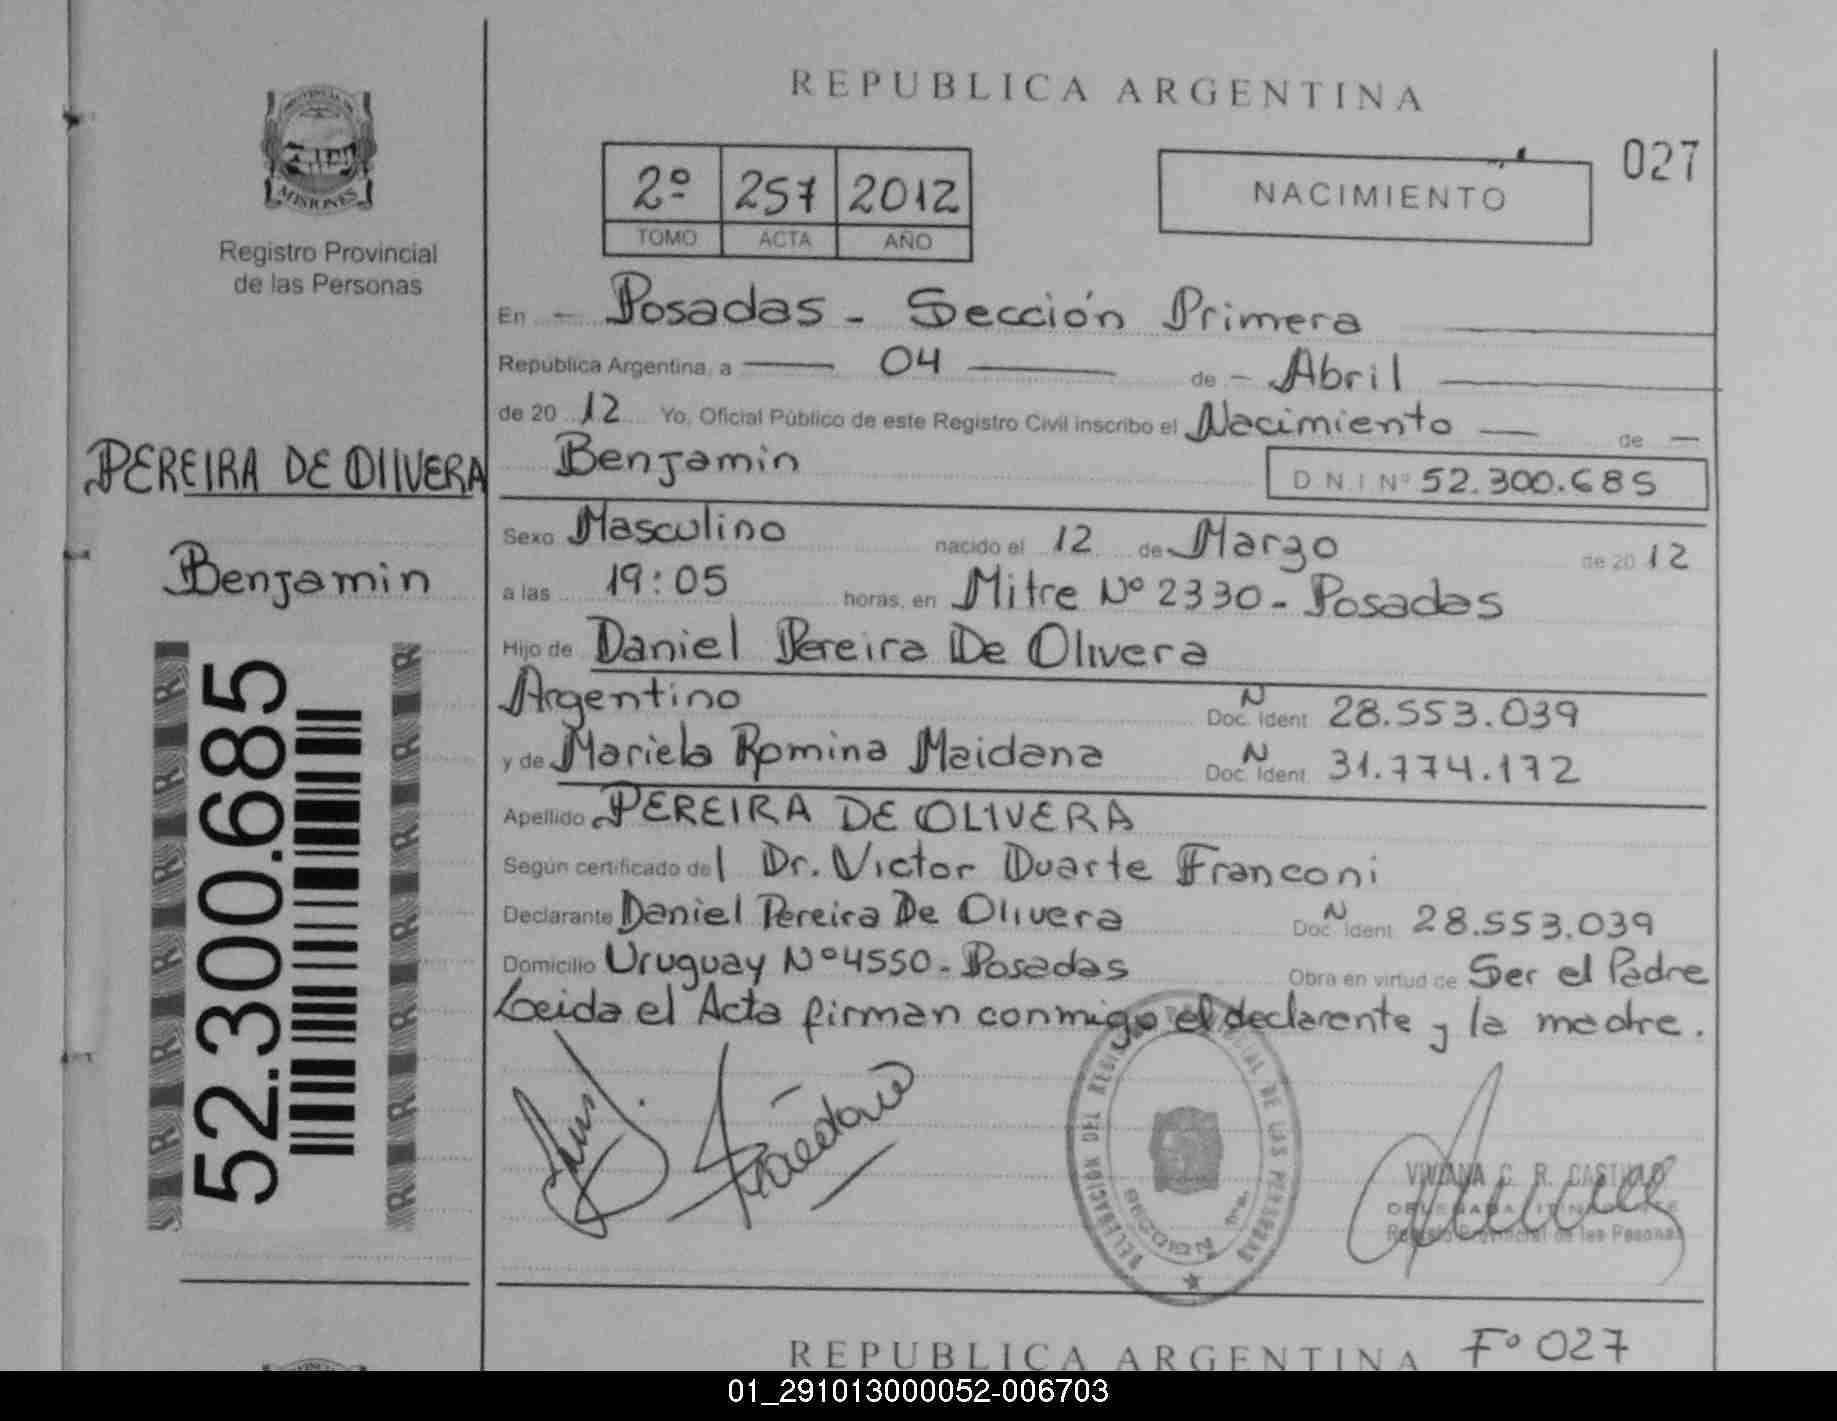 PROVINCIA DE
MISIONES
Registro Provincial
de las Personas
PEREIRA DE OlIVERA
Benjamin
52.300.685
REPUBLICA ARGENTINA
027
2º 257 2012
TOMO ACTA AÑO
NACIMIENTO
En - Posadas - Sección Primera
República Argentina, a 04 de - Abril
de 20 12 Yo, Oficial Público de este Registro Civil inscribo el Nacimiento — de —
Benjamin D.N.I Nº 52.300.685
Sexo Masculino nacido el 12 de Marzo de 20 12
a las 19:05 horas, en Mitre Nº 2330 - Posadas
Hijo de Daniel Pereira De Olivera
Argentino Doc. Ident. N 28.553.039
y de Mariela Romina Maidana Doc. Ident. N 31.774.172
Apellido PEREIRA DE OLIVERA
Según certificado del Dr. Victor Duarte Franconi
Declarante Daniel Pereira De Olivera Doc. Ident. N 28.553.039
Domicilio Uruguay Nº 4550 - Posadas Obra en virtud de Ser el Padre
Leida el Acta firman conmigo el declarante y la madre.
DELEGACION DEL REGISTRO PROVINCIAL DE LAS PERSONAS
SECCION 1ra.
VIVIANA C. R. CASTILLO
DELEGADA ITINERANTE
Registro Provincial de las Pesonas
REPUBLICA ARGENTINA Fº 027
01_291013000052-006703